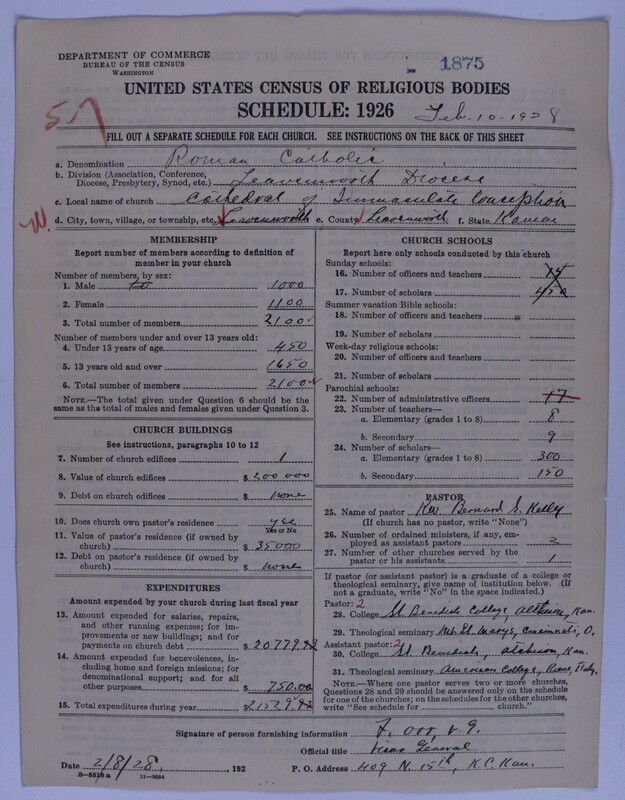 DEPARTMENT OF COMMERCE
BUREAU OF THE CENSUS
WASHINGTON
1875
UNITED STATES CENSUS OF RELIGIOUS BODIES
SCHEDULE: 1926
Feb. 10-1928
57
FILL OUT A SEPARATE SCHEDULE FOR EACH CHURCH. SEE INSTRUCTIONS ON THE BACK OF THIS SHEET
a. Denomination Roman Catholic
b. Division (Association, Conference,
Diocese, Presbytery, Synod, etc.) Leavenworth Diocese
c. Local name of church Cathedral of Immaculate Conception
W.
d. City, town, village, or township, etc. Leavenworth e. County Leavenworth f. State Kansas
MEMBERSHIP
Report number of members according to definition of
member in your church
Number of members, by sex:
1. Male 1000
2. Female 1100
3. Total number of members 2100
Number of members under and over 13 years old:
4. Under 13 years of age 450
5. 13 years old and over 1650
6. Total number of members 2100
NOTE.—The total given under Question 6 should be the
same as the total of males and females given under Question 3.
CHURCH BUILDINGS
See instructions, paragraphs 10 to 12
7. Number of church edifices 1
8. Value of church edifices $200 000
9. Debt on church edifices $ none
10. Does church own pastor's residence yes
Yes or No
11. Value of pastor's residence (if owned by
church) $35000
12. Debt on pastor's residence (if owned by
church) $ none
EXPENDITURES
Amount expended by your church during last fiscal year
13. Amount expended for salaries, repairs,
and other running expenses; for im-
provements or new buildings; and for
payments on church debt $20779.93
14. Amount expended for benevolences,
including home and foreign missions; for
denominational support; and for all
other purposes $750.00
15. Total expenditures during year $21529.93
CHURCH SCHOOLS
Report here only schools conducted by this church
Sunday schools:
16. Number of officers and teachers
17. Number of scholars 450
Summer vacation Bible schools:
18. Number of officers and teachers
19. Number of scholars
Week-day religious schools:
20. Number of officers and teachers
21. Number of scholars
Parochial schools:
22. Number of administrative officers 17
23. Number of teachers—
a. Elementary (grades 1 to 8) 8
b. Secondary 9
24. Number of scholars—
a. Elementary (grades 1 to 8) 300
b. Secondary 150
PASTOR
25. Name of pastor Rev Bernard S. Kelly
(If church has no pastor, write "None")
26. Number of ordained ministers, if any, em-
ployed as assistant pastors 2
27. Number of other churches served by the
pastor or his assistants 1
If pastor (or assistant pastor) is a graduate of a college or
theological seminary, give name of institution below. (If
not a graduate, write "No" in the space indicated.)
Pastor: 2
28. College St Benedicts College, Atchison, Kan.
29. Theological seminary Mt. St. Marys, Cincinnati, O.
Assistant pastor: 2
30. College St Benedicts, Atchison, Kan.
31. Theological seminary American College, Rome, Italy.
NOTE.—Where one pastor serves two or more churches,
Questions 28 and 29 should be answered only on the schedule
for one of the churches; on the schedules for the other churches,
write "See schedule for church."
Signature of person furnishing information F. Orr, V. G.
Official title Vicar General
Date 2/8/28, 192 P. O. Address 409 N. 15th, K.C. Kan.
8-5518 a 11-9034